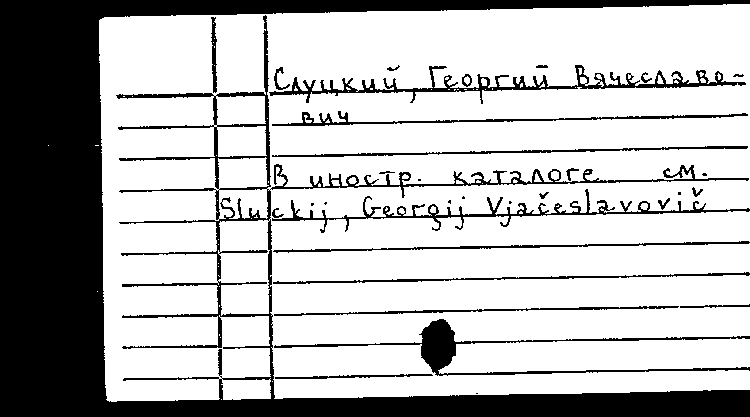 Слуцкий, Георгий Вячеславо-
вич
В иностр. каталоге см.
Sluckij, Georgij Vjačeslavovič